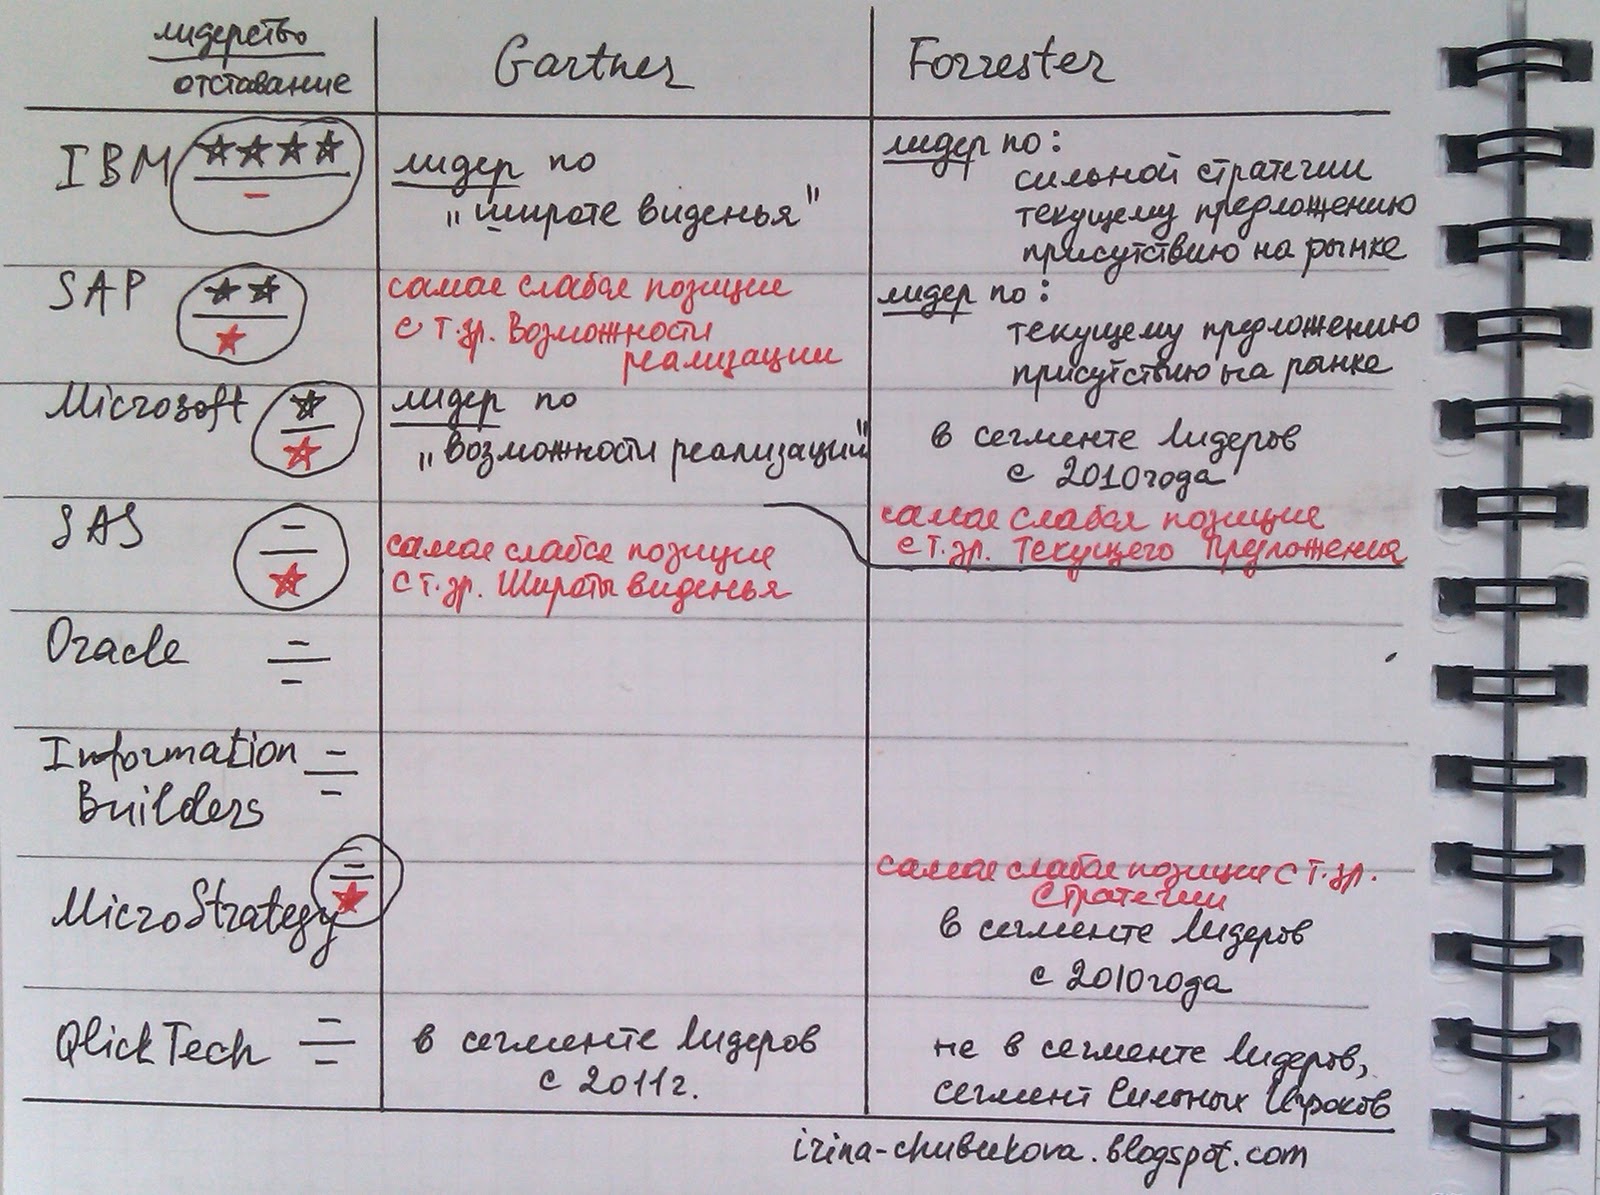 лидерство
отставание
Gartner
Forrester
IBM
лидер по
„широте виденья"
лидер по:
сильной стратегии
текущему предложению
присутствию на рынке
SAP
самая слабая позиция
с т.зр. Возможности
реализации
лидер по:
текущему предложению
присутствию на рынке
Microsoft
лидер по
„Возможности реализации"
в сегменте Лидеров
с 2010 года
SAS
самая слабая позиция
с т.зр. Широты виденья
самая слабая позиция
с т.зр. Текущего предложения
Oracle
Information
Builders
MicroStrategy
самая слабая позиция с т.зр.
Стратегии
в сегменте Лидеров
с 2010 года
QlickTech
в сегменте Лидеров
с 2011 г.
не в сегменте Лидеров,
сегмент Сильных Игроков
irina-chubukova.blogspot.com